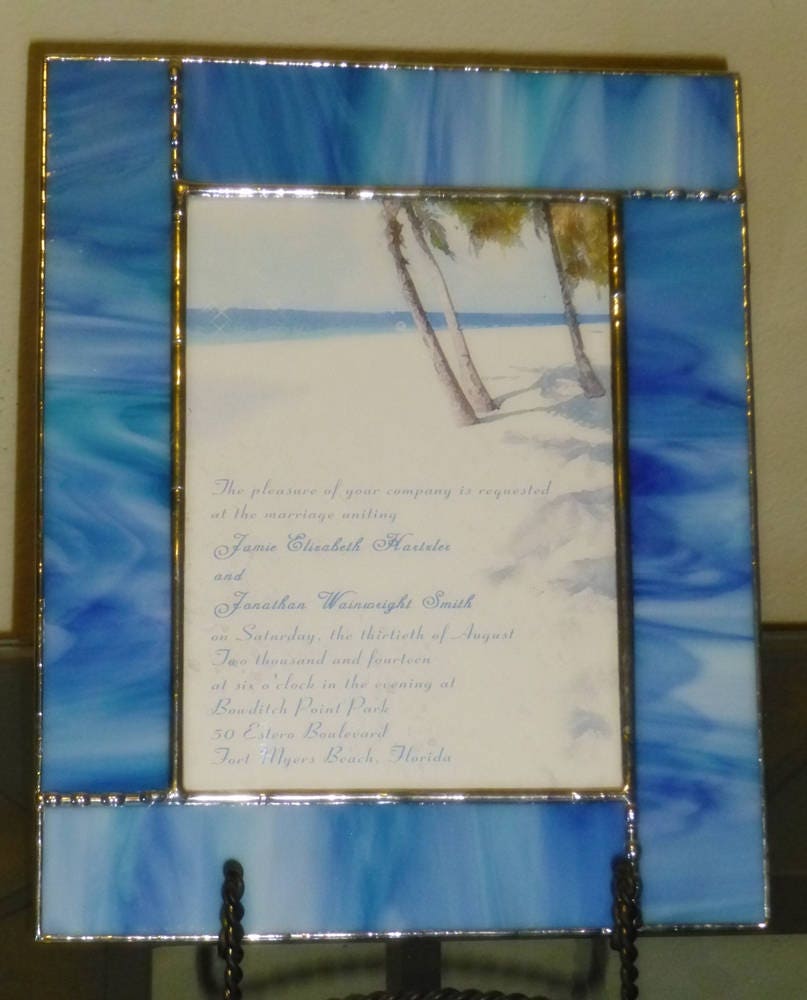 The pleasure of your company is requested
at the marriage uniting
Jamie Elizabeth Hartzler
and
Jonathan Wainwright Smith
on Saturday, the thirtieth of August
Two thousand and fourteen
at six o'clock in the evening at
Bowditch Point Park
50 Estero Boulevard
Fort Myers Beach, Florida